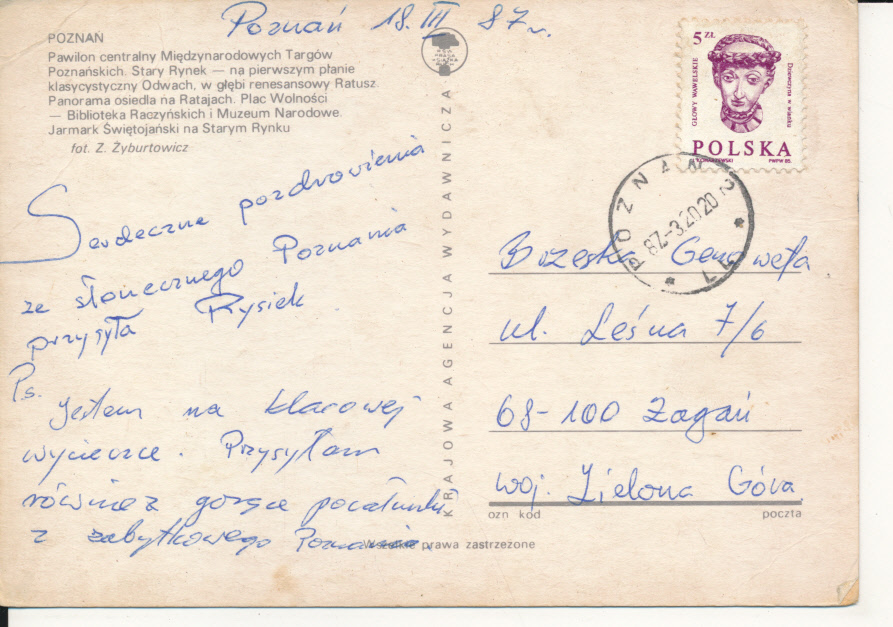 Poznań 18.III 87r.
POZNAŃ
Pawilon centralny Międzynarodowych Targów
Poznańskich. Stary Rynek — na pierwszym planie
klasycystyczny Odwach, w głębi renesansowy Ratusz.
Panorama osiedla na Ratajach. Plac Wolności
— Biblioteka Raczyńskich i Muzeum Narodowe.
Jarmark Świętojański na Starym Rynku
fot. Z. Żyburtowicz
Serdeczne pozdrowienia
ze słonecznego Poznania
przysyła Rysiek
Ps. Jestem na klasowej
wycieczce. Przysyłam
również gorące pocałunki
z zabytkowego Poznania.
KRAJOWA AGENCJA WYDAWNICZA
5 ZŁ
GŁOWY WAWELSKIE
Dziewczyna w wianku
POLSKA
PWPW 85.
POZNAŃ 2
87-3.20 20
Brzeska Genowefa
ul. Leśna 7/6
68-100 Żagań
woj. Zielona Góra
ozn kod
poczta
Wszelkie prawa zastrzeżone